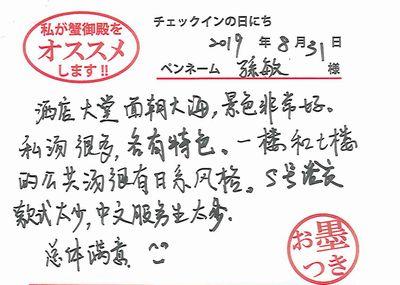 私が蟹御殿を
オススメ
します!!
チェックインの日にち
2019 年 8 月 31 日
ペンネーム 孫敏 様
酒店大堂面朝大海,景色非常好。
私汤很多,各有特色。一楼和七楼
的公共汤很有日系风格。S号浴衣
款式太少,中文服务生太少.
总体满意.
お墨
つき